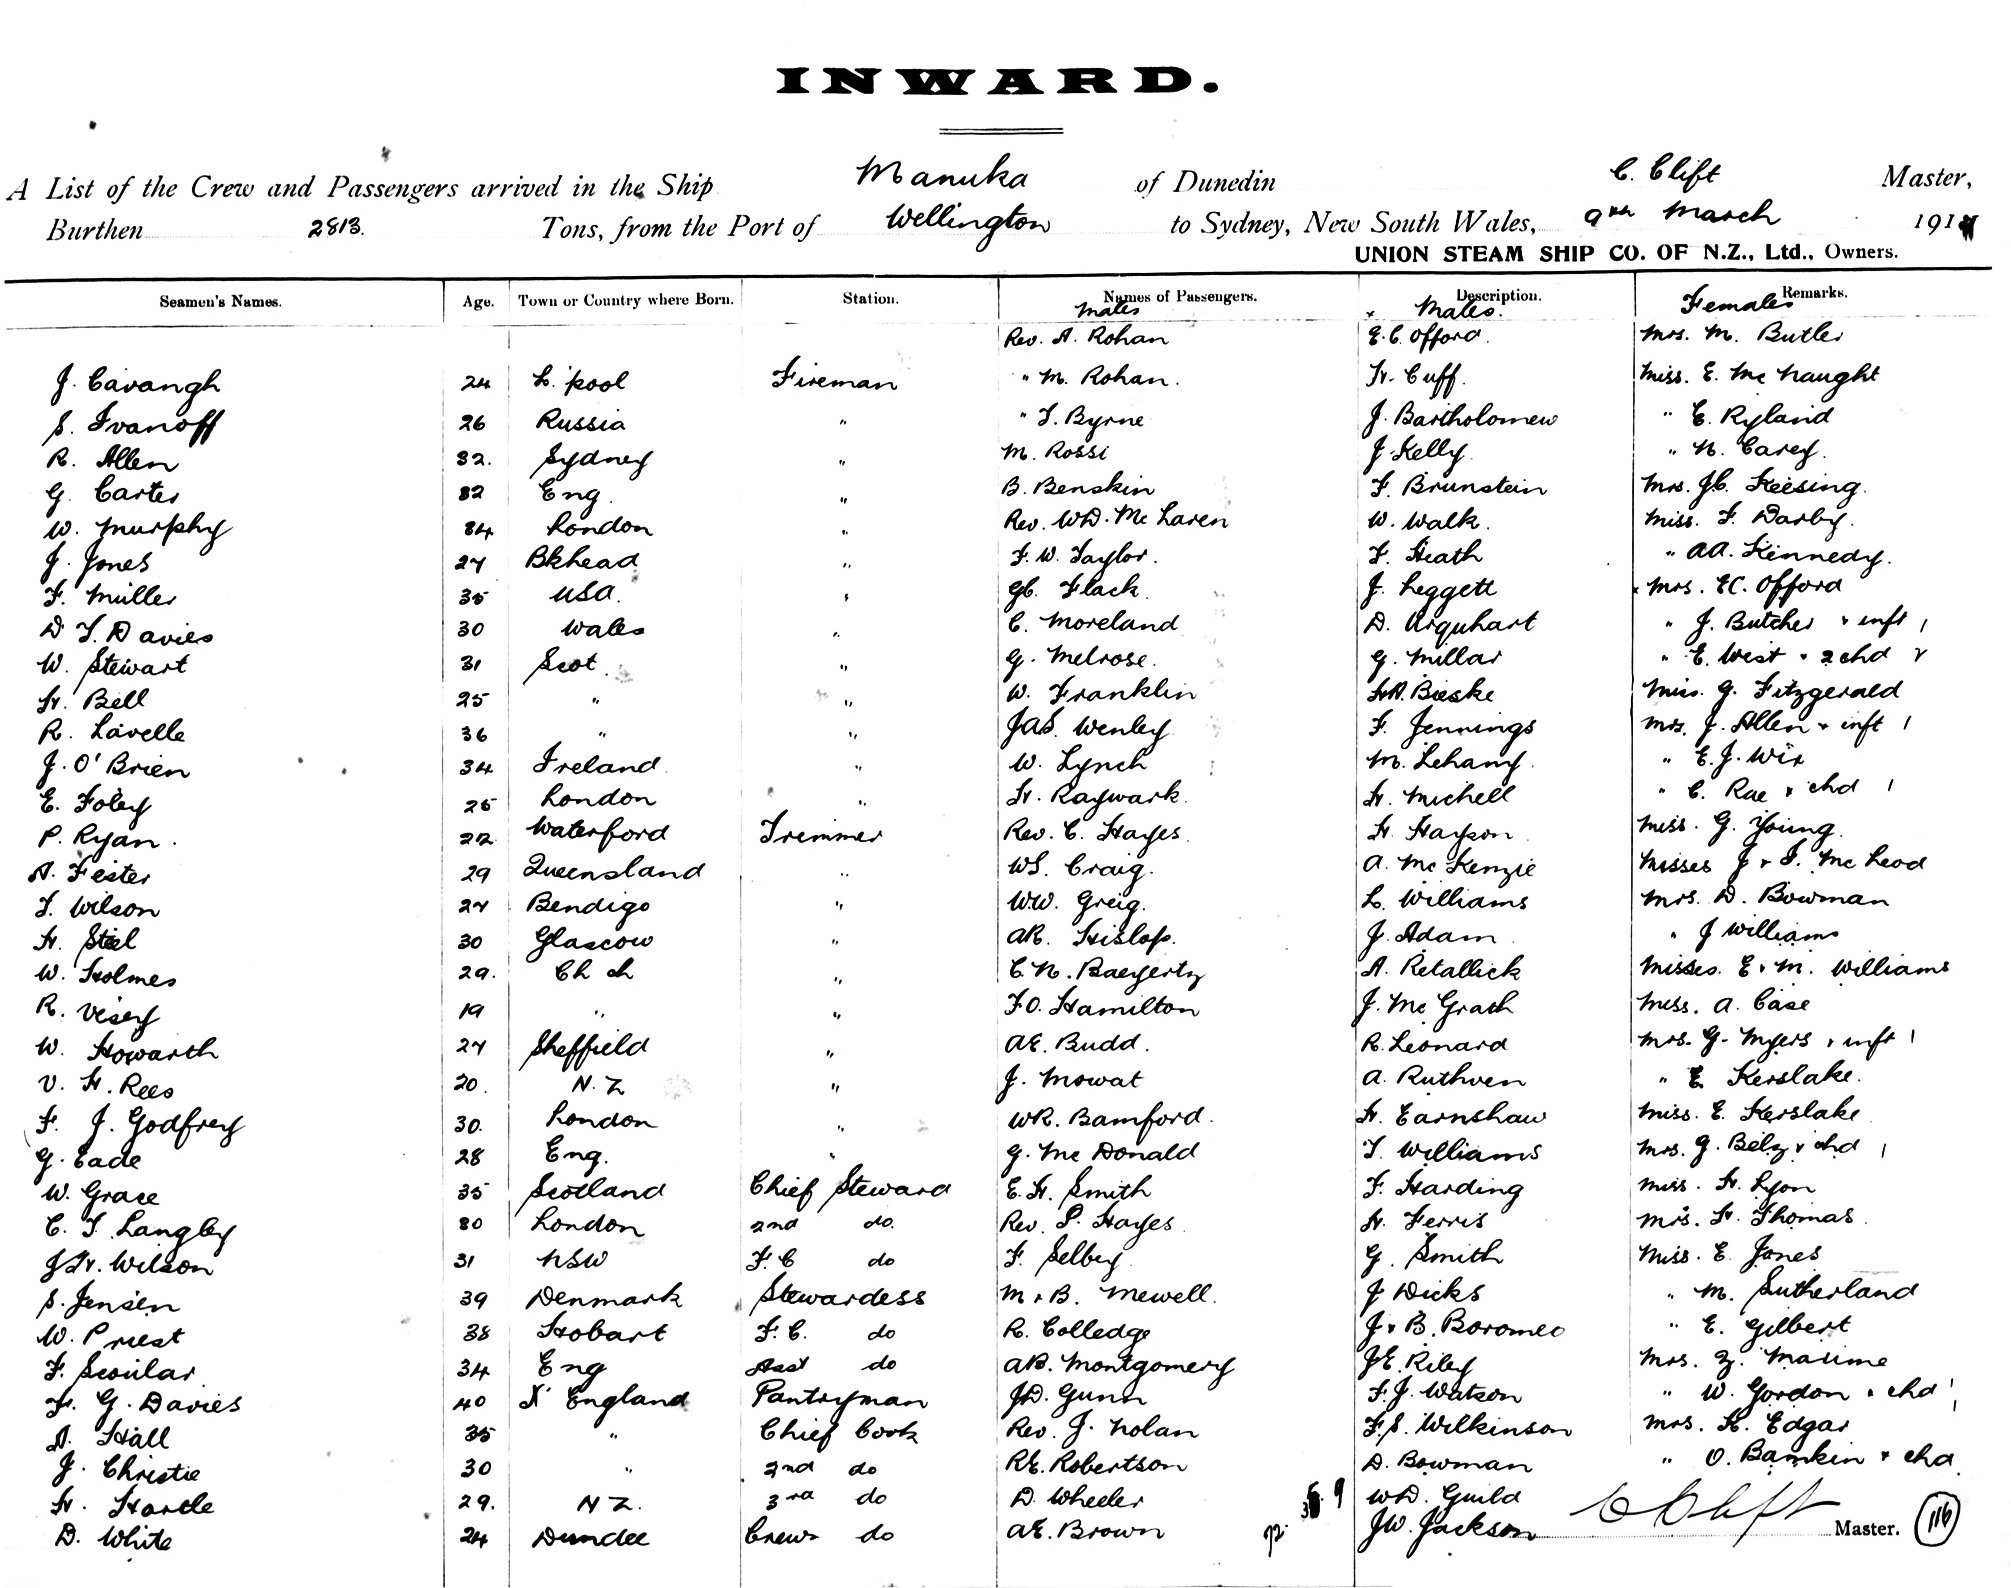 INWARD.
A List of the Crew and Passengers arrived in the Ship Manuka of Dunedin C. Clift Master,
Burthen 2813. Tons, from the Port of Wellington to Sydney, New South Wales, 9th March 191
UNION STEAM SHIP CO. OF N.Z., Ltd., Owners.
Seamen's Names. Age. Town or Country where Born. Station. Names of Passengers. Description. Remarks.
Males Males. Females
Rev. A. Rohan E.C. Offord. Mrs. M. Butler
J. Cavangh 24 L'pool Fireman " M. Rohan. H. Cuff. Miss. E. McNaught
S. Ivanoff 26 Russia " " T. Byrne J. Bartholomew " E. Ryland
R. Allen 32. Sydney " M. Rossi J. Kelly. " N. Carey.
G. Carter 32 Eng. " B. Benskin F. Brunstein Mrs. JC. Keesing.
W. Murphy 34 London " Rev. WD. McLaren W. Walk. Miss. F. Darby.
J. Jones 27 Bkhead " F. W. Taylor. F. Heath " AA. Kennedy.
F. Muller 35 USA. " GC. Flack. J. Leggett Mrs. EC. Offord
D T. Davies 30 Wales " C. Moreland D. Urquhart " J. Butcher & inft 1
W. Stewart 31 Scot. " G. Melrose. G. Millar " E. West & 2 chd 2
H. Bell 25 " " W. Franklin HA. Bieske Miss. G. Fitzgerald
R. Lavelle 36 " " JAS. Wenley F. Jennings Mrs. J. Allen & inft 1
J. O'Brien 34 Ireland " W. Lynch M. Lehany. " E. J. Wix
E. Foley 25 London " H. Raywark. H. Michell " C. Rae & chd 1
P. Ryan. 22 Waterford Trimmer Rev. C. Hayes. H. Hayson Miss. G. Young.
A. Fester 29 Queensland " WS. Craig. A. McKenzie Misses J & I. McLeod
T. Wilson 27 Bendigo " WW. Greig. L. Williams Mrs. D. Bowman
H. Steel 30 Glascow " AR. Hislop. J. Adam " J Williams
W. Holmes 29. Ch ch " C. N. Baeyertz A. Retallick Misses. E & M. Williams
R. Vesey 19 " " F.O. Hamilton J. McGrath Miss. A. Case
W. Howarth 27 Sheffield " AE. Budd. R. Leonard Mrs. G. Myers & inft 1
V. H. Rees 20. N. Z " J. Mowat A. Ruthven " E Kerslake.
F. J. Godfrey 30. London " WR. Bamford. H. Earnshaw Miss. E. Kerslake
G. Eade 28 Eng. " G. McDonald T. Williams Mrs. G. Belz & chd 1
W. Grace 35 Scotland Chief Steward E. H. Smith F. Harding Miss. H. Lyon
C. T. Langley 30 London 2nd do. Rev. P. Hayes. H. Ferris Mrs. H. Thomas.
JH. Wilson 31 NSW F. C do F. Selbey G. Smith Miss. E. Jones
S. Jensen 39 Denmark Stewardess M & B. Mewell. J Dicks " M. Sutherland
W. Priest 38 Hobart F. C. do R. Colledge J & B. Boromeo " E. Gilbert
F. Scoular 34 Eng Asst do AB. Montgomery JE. Riley Mrs. Z. Maxime
H. G. Davies 40 N' England Pantryman JD. Gunn F. J. Watson " W. Gordon & chd 1
A. Hall 35 " Chief Cook Rev. J. Nolan F.S. Wilkinson Mrs. H. Edgar
J. Christie 30 " 2nd do RE. Robertson D. Bowman " O. Bamkin & chd 1
H. Hardle 29. N Z. 3rd do D. Wheeler WD. Guild
D. White 24 Dundee Crews do AE. Brown 72. JW. Jackson C Clift Master. 116